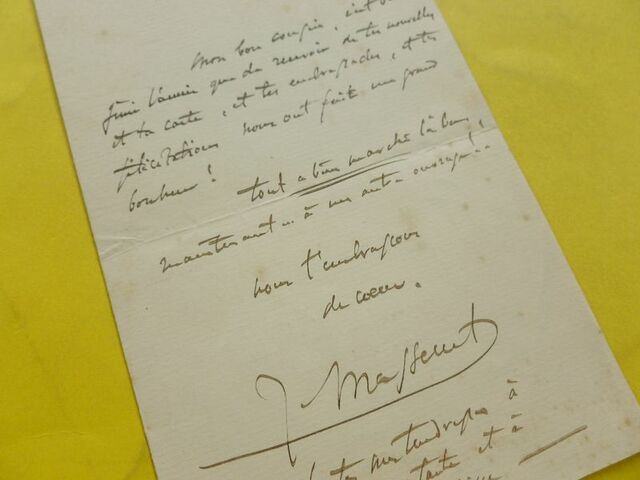 Mon bon cousin,
j'ai l'ennui que de recevoir de tes nouvelles
et ta carte, et tes embrassades, et tes
félicitations nous ont fait un grand
bonheur!
tout a bien marché là bas,
maintenant .. à un autre ouvrage! .
nous t'embrassons
de cœur.
J. Massenet
tes mes tendresses à
tante et à